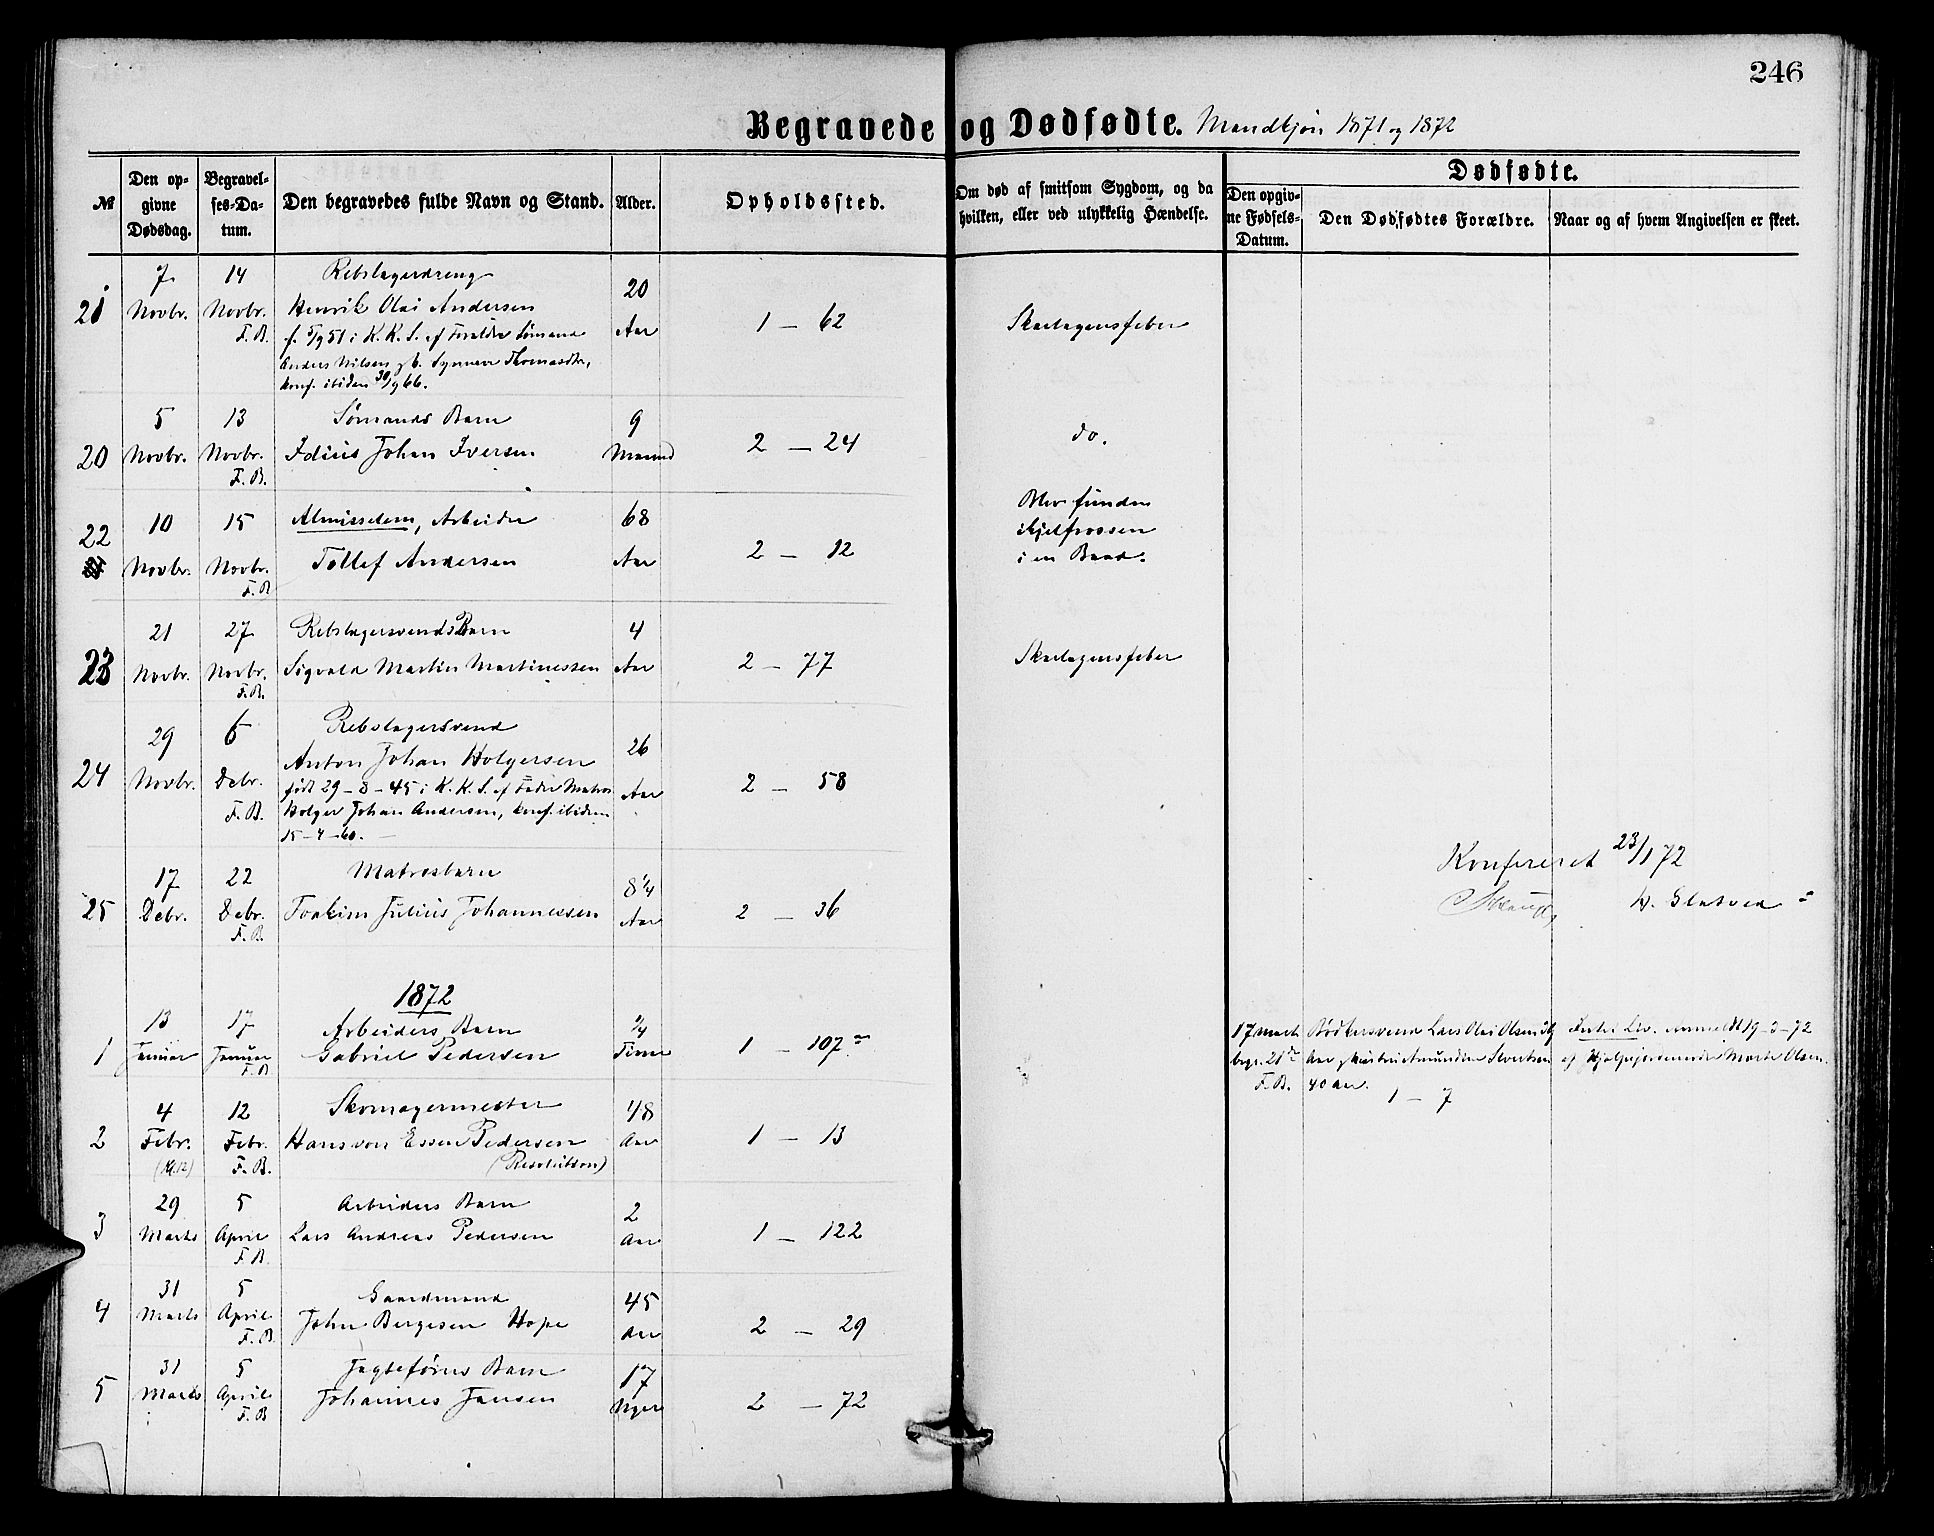 246
Begravede og Dødfødte. Mandkjøn 1871 og 1872
№
Den opgivne Dødsdag.
Begravelses-Datum.
Den begravedes fulde Navn og Stand.
Alder.
Opholdssted.
Om død af smitsom Sygdom, og da hvilken, eller ved ulykkelig Hændelse.
Dødfødte.
Den opgivne Fødsels-Datum.
Den Dødfødtes Forældre.
Naar og af hvem Angivelsen er skeet.
21 7 Novbr. 14 Novbr. F. B. Rebslagerdreng 20 Aar 1 – 62 Skarlagensfeber
Henrik Olai Andersen
f. 5/9 51 i K. K. S. af Forældre Sømand
Anders Nilsen og h. Synneve Thomasdtr,
konf. ibidem 30/9 66.
20 5 Novbr. 13 Novbr. F. B. Sømands Barn 9 Maaned 2 – 24 do.
Idius Johan Iversen
22 10 Novbr. 15 Novbr. F. B. Almisselem, Arbeider 68 Aar 2 – 12 Blev funden
Tollef Andersen ihjelfrossen
i en Baad.
23 21 Novbr. 27 Novbr. F. B. Rebslagersvends Barn 4 Aar 2 – 77 Skarlagensfeber
Sigvald Martin Martinessen
24 29 Novbr. 6 Debr. F. B. Rebslagersvend 26 Aar 2 – 58
Anton Johan Holgersen
født 29 – 8 – 45 i K. K. S. af Fader Matros
Holger Johan Andersen, konf. ibidem
15 – 4 – 60. –
25 17 Debr. 22 Debr. F. B. Matrosbarn 8 1/4 Aar 2 – 36
Joakim Julius Johannessen
Konfereret 23/1 72
1872
1 13 Januar 17 Januar F. B. Arbeiders Barn 1/4 Time 1 – 107
Gabriel Pedersen
17 Marts
begr. 21de
F. B.
Bødkersvend Lars Olai Olsen
40 Aar.
1 – 7
anmeldt 19 – 3 – 72
af Hjælpejordemoder Marte Olsen.
2 4 Febr. 12 Febr. F. B. Skomagermester 48 Aar 1 – 13
Hans von Essen Pedersen
(Resolution)
3 29 Marts 5 April F. B. Arbeiders Barn 2 Aar 1 – 122
Lars Andreas Pedersen
4 31 Marts 5 April F. B. Gaardmand 45 Aar 2 – 29
John Bergesen Hope
5 31 Marts 5 April F. B. Jagtefører Barn 17 Uger 2 – 72
Johannes Jansen